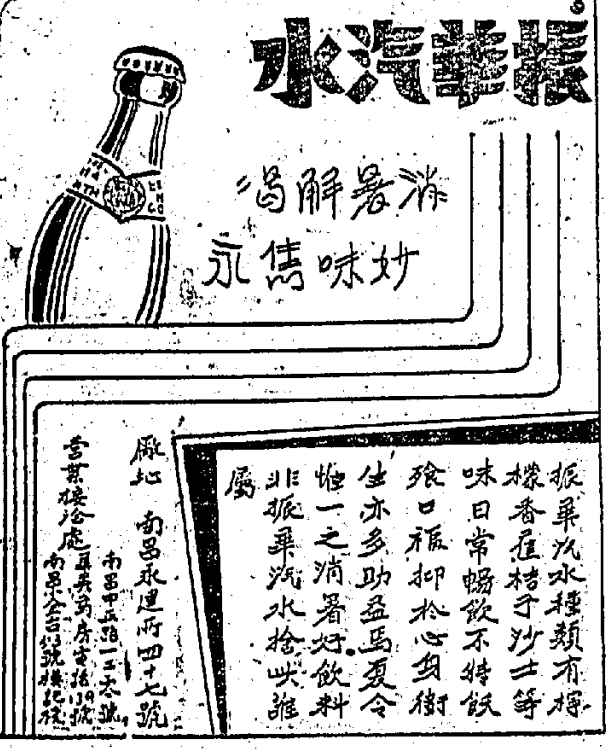 振華汽水
消暑解渴
妙味雋永
振華汽水種類有檸
檬香蕉桔子沙士等
味日常暢飲不特飫
飱口福抑於心身衛
生亦多助益焉夏令
惟一之消暑好飲料
非振華汽水捨此誰
屬
廠址 南昌永建所四十七號
營業接洽處
南昌中正路一二零號
藥房電話
南昌